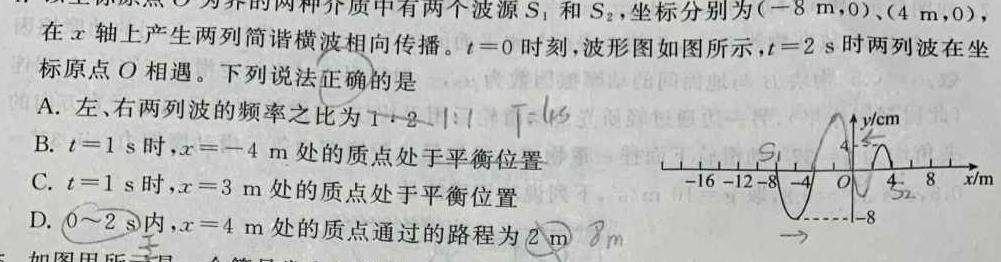 为界的两种介质中有两个波源 S₁ 和 S₂,坐标分别为(-8 m,0)、(4 m,0),
在 x 轴上产生两列简谐横波相向传播。t=0 时刻,波形图如图所示,t=2 s 时两列波在坐
标原点 O 相遇。下列说法正确的是
A. 左、右两列波的频率之比为 1:2 1:1 T=4s
B. t=1 s 时,x=-4 m 处的质点处于平衡位置
C. t=1 s 时,x=3 m 处的质点处于平衡位置
D. 0~2 s 内,x=4 m 处的质点通过的路程为 2 m 8m
y/cm
4
S₁
-16 -12 -8 -4 O 4 8 x/m
S₂
-8